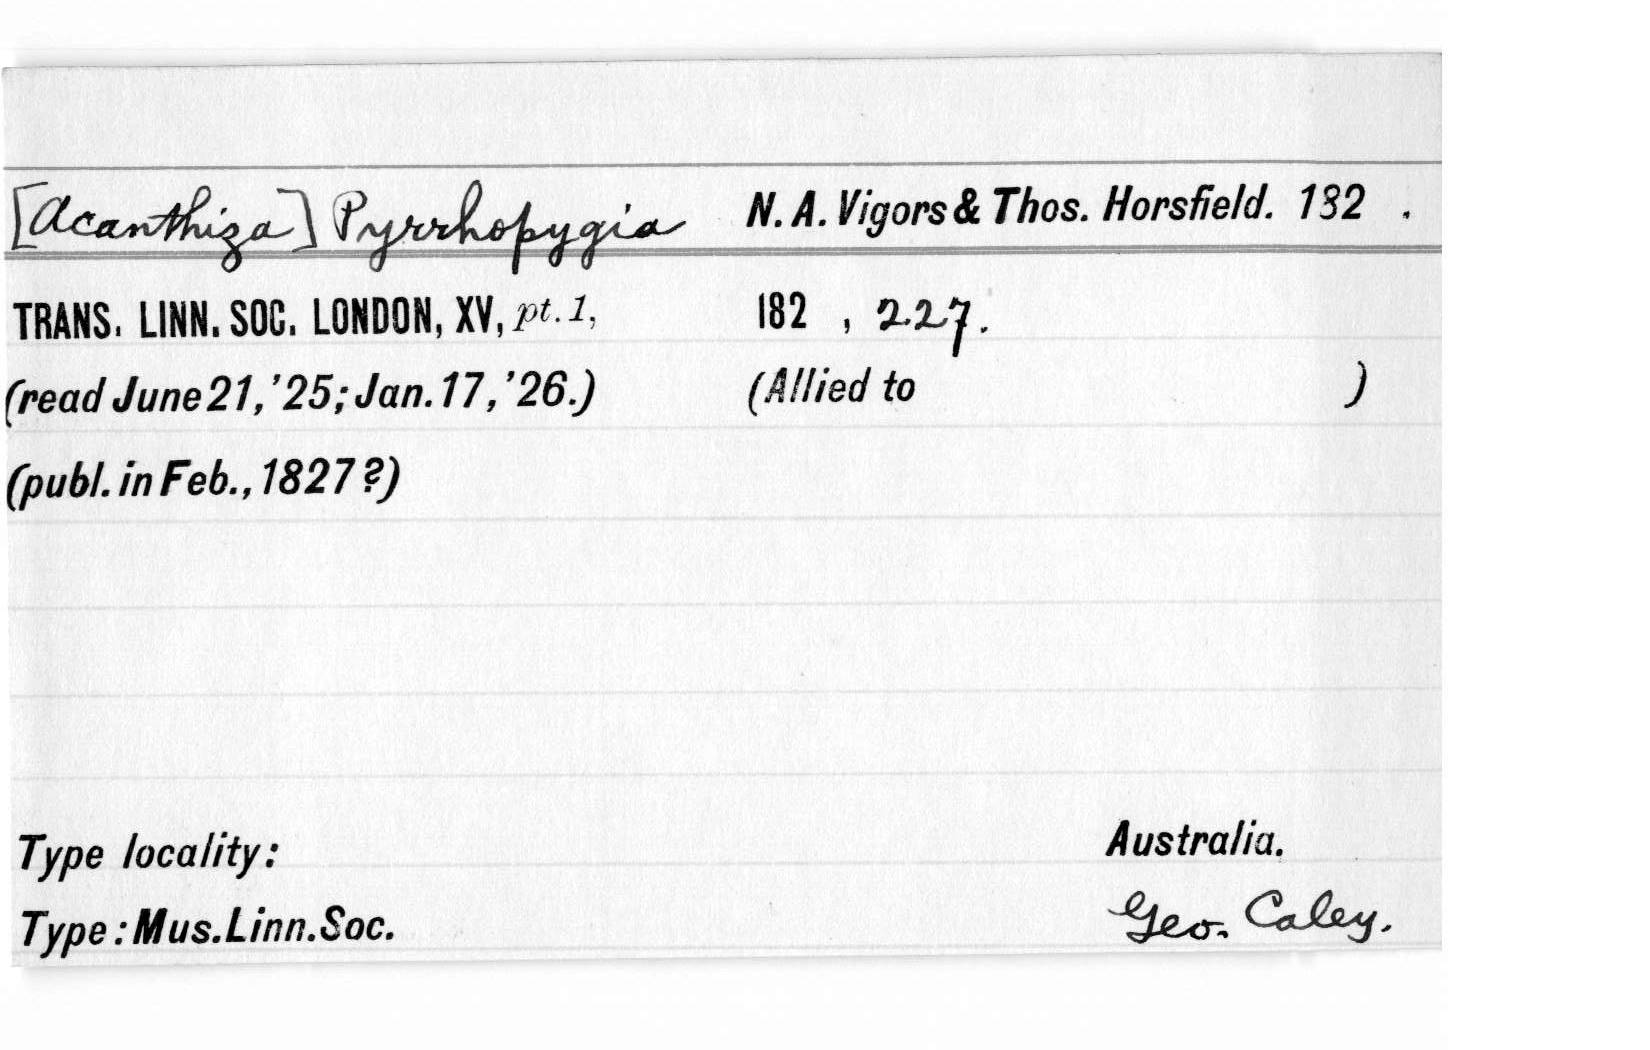 [Acanthiza] Pyrrhopygia N. A. Vigors & Thos. Horsfield. 182 .
TRANS. LINN. SOC. LONDON, XV, pt. 1, 182 , 227.
(read June 21, '25; Jan. 17, '26.) (Allied to )
(publ. in Feb., 1827 ?)
Type locality: Australia.
Type: Mus. Linn. Soc. Geo. Caley.